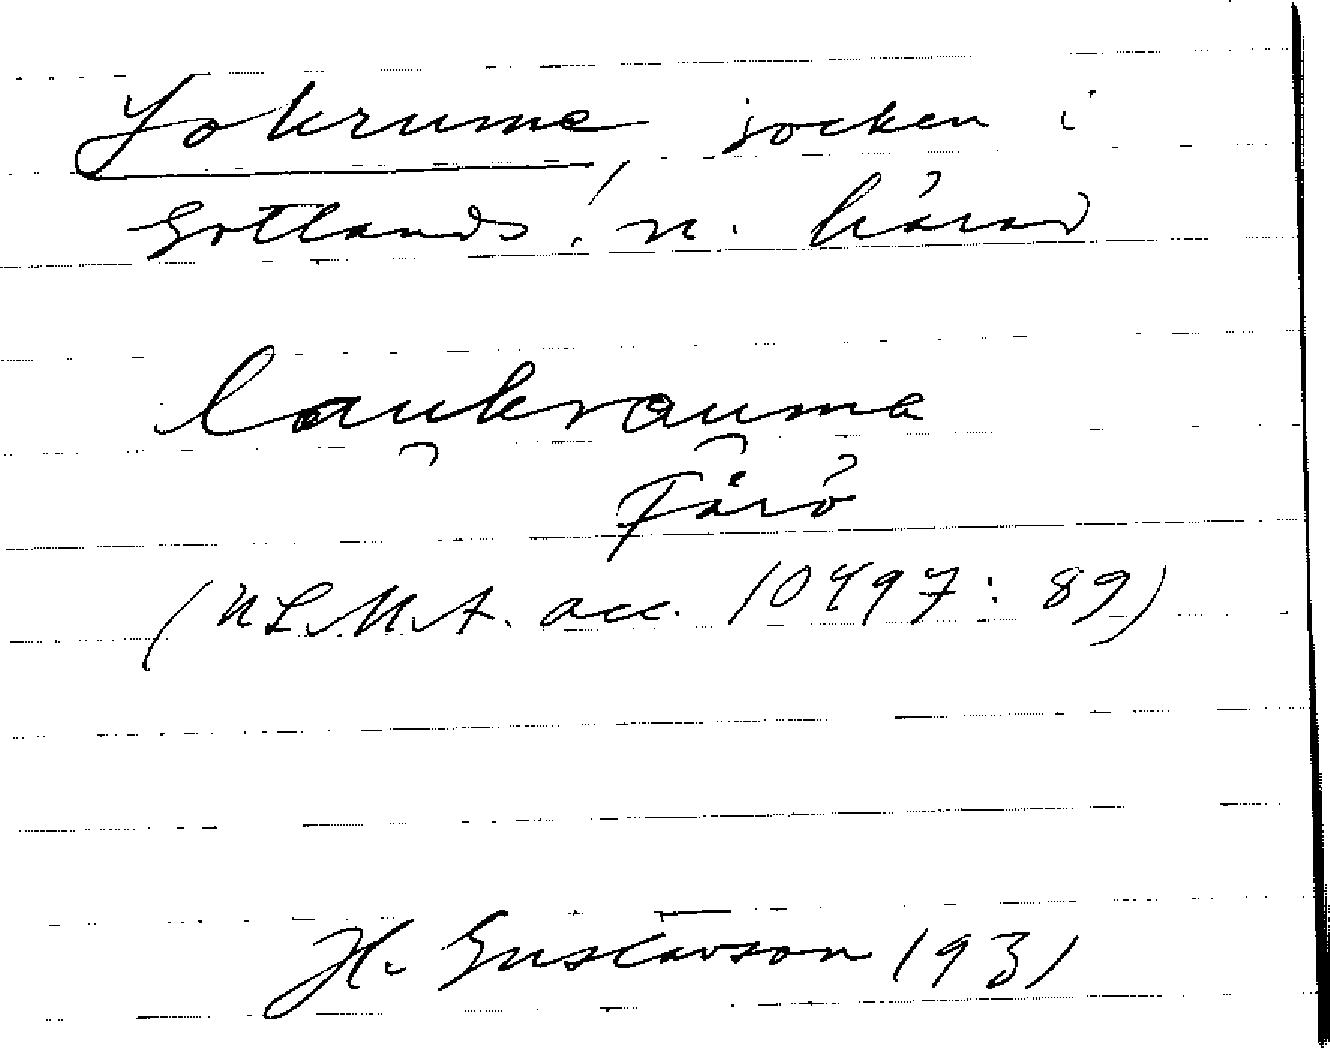 Lokrume, socken i
Gotlands n. härad
lau̯krau̯ma
Fårö
(ULMA. acc. 10497: 89)
H. Gustavson 1931